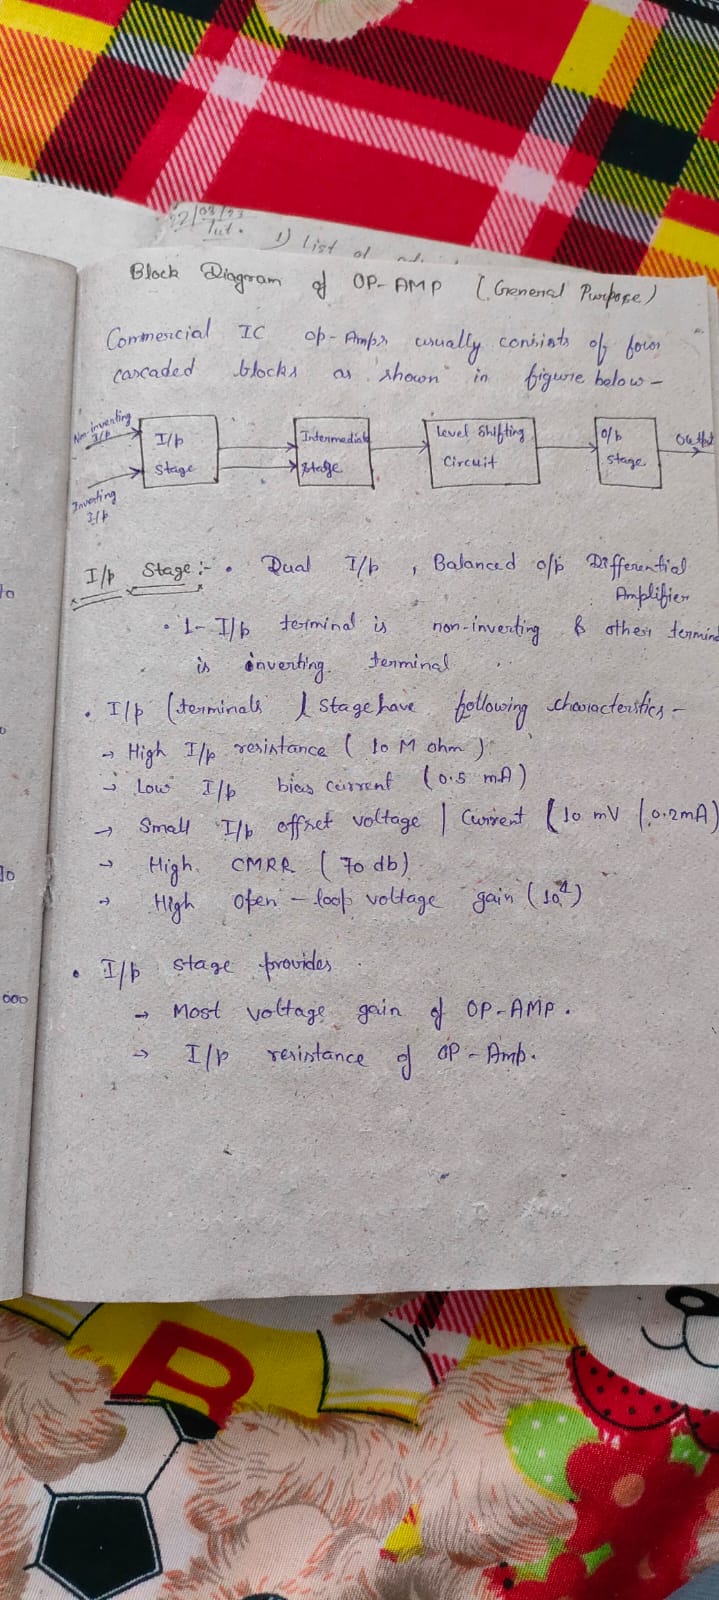 22/03/23
Tut.
1) List of
Block Diagram of OP-AMP (General Purpose)
Commercial IC op-Amps usually consists of four
cascaded blocks as shown in figure below -
Non-inverting
I/p
Inverting
I/p
I/p
Stage
Intermediate
Stage
Level Shifting
Circuit
o/p
stage
Output
I/p Stage :- • Dual I/p , Balanced o/p Differential
Amplifier
• 1- I/p terminal is non-inverting & other termin
is inverting terminal
• I/p (terminals / stage have following characteristics -
→ High I/p resistance ( 10 M ohm )
→ Low I/p bias current (0.5 mA)
→ Small I/p offset voltage | Current (10 mV / 0.2mA)
→ High CMRR ( 70 db)
→ High Open - loop voltage gain (10⁴)
• I/p stage provides
→ Most voltage gain of OP-AMP.
→ I/p resistance of OP - Amp.
000
B